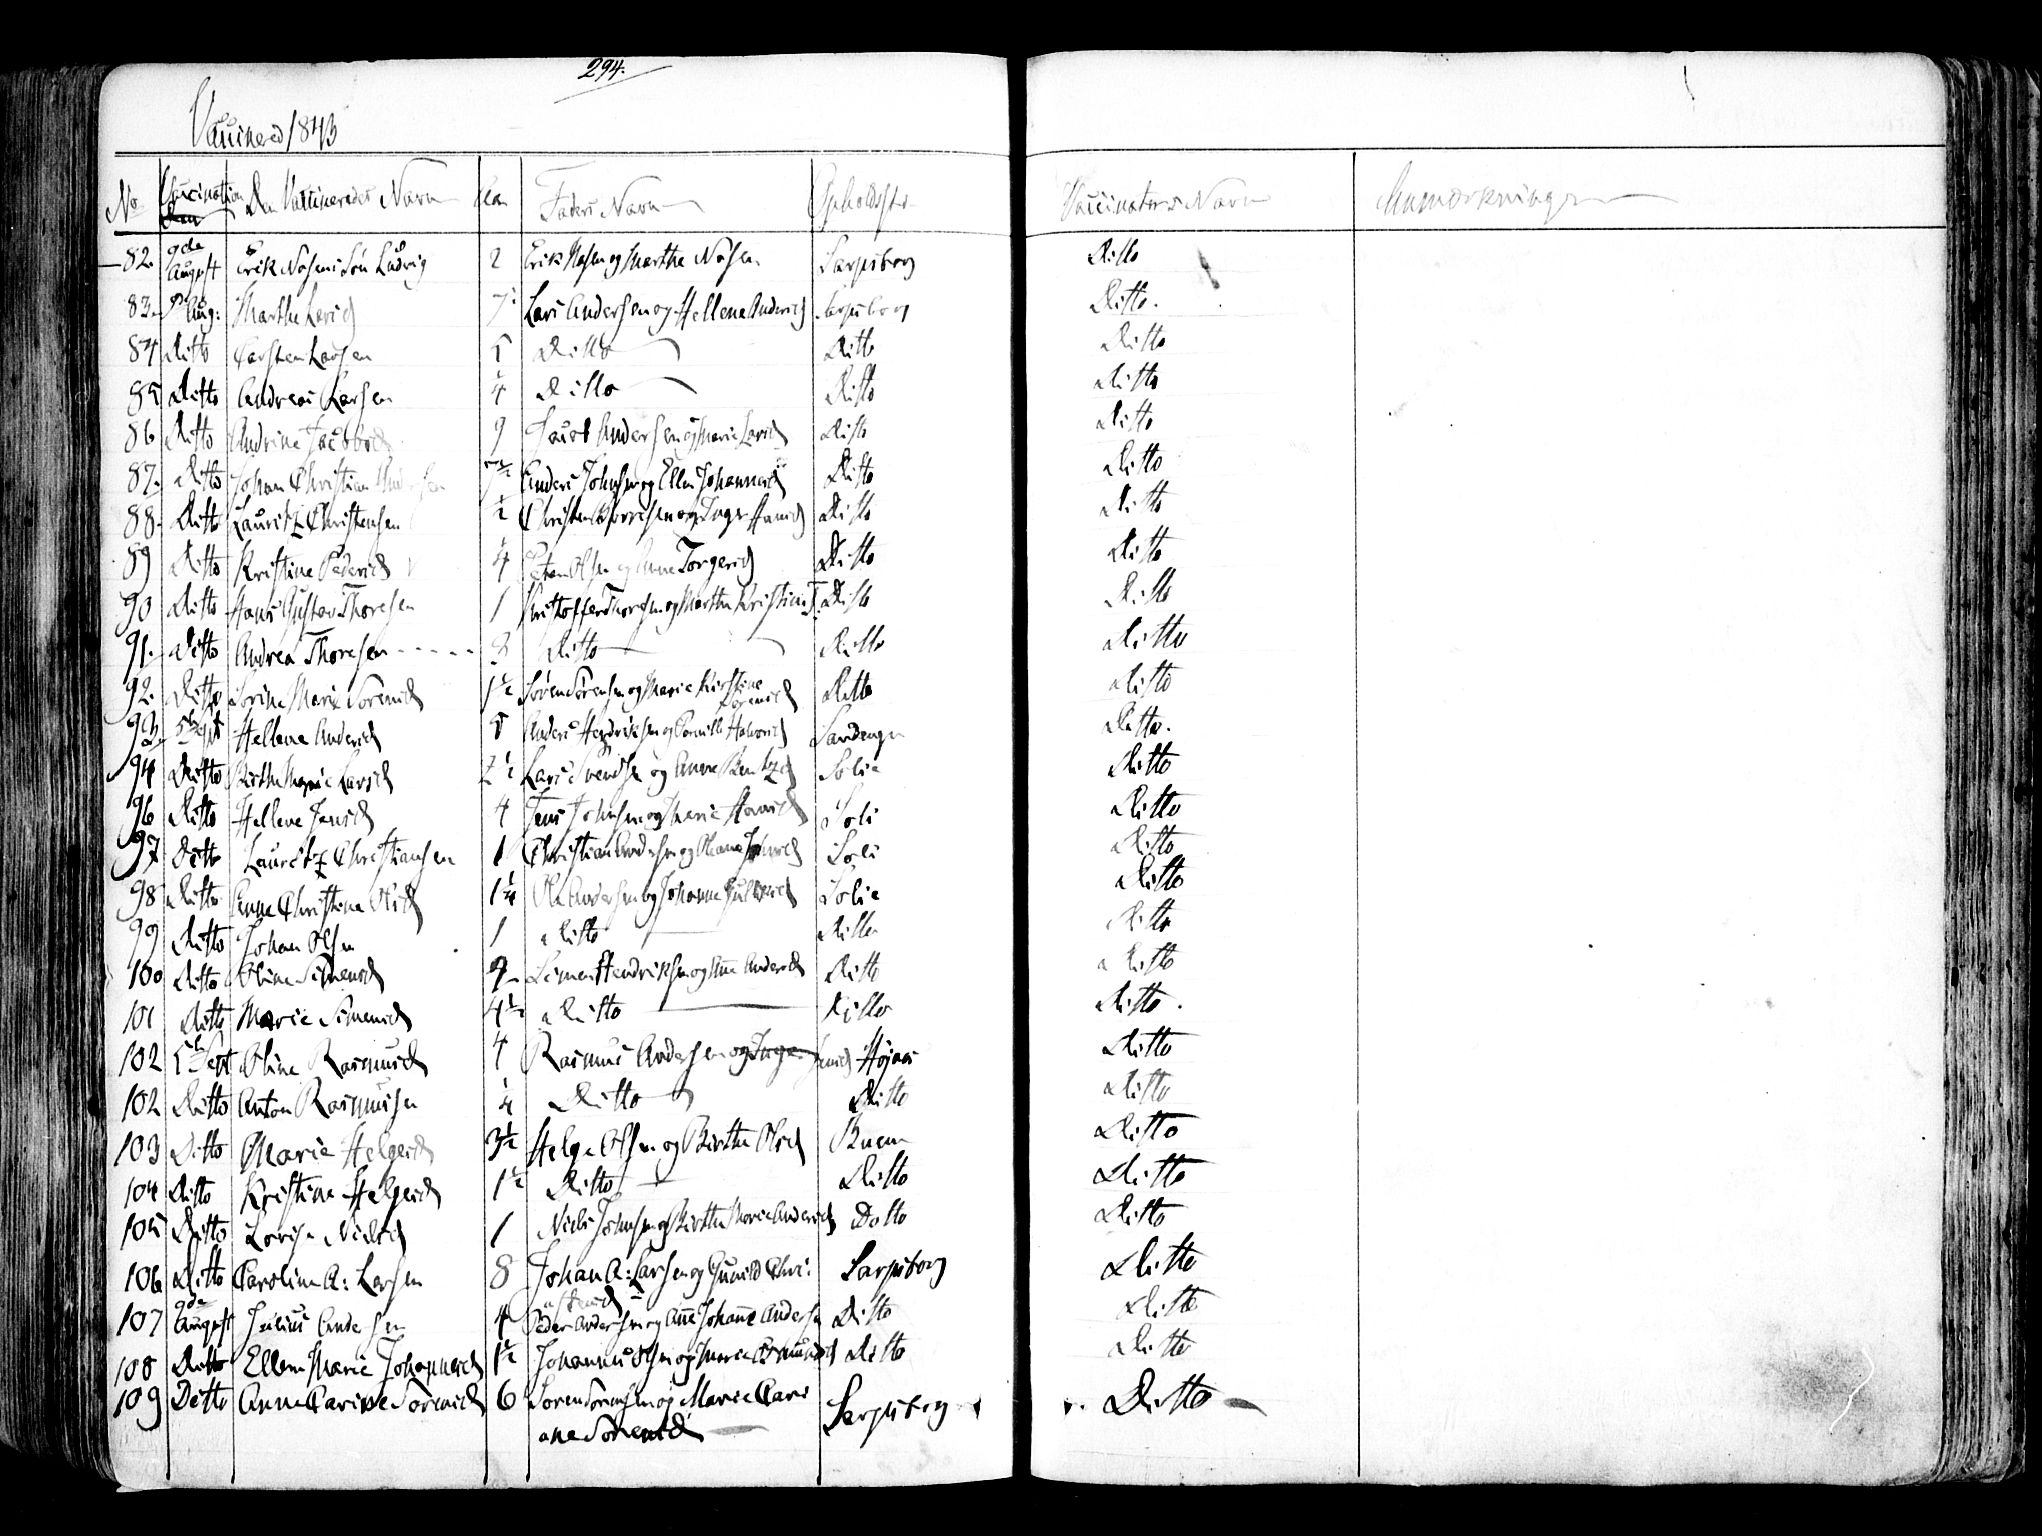 294.
Vaccinered 1843
No Vaccination Den Vaccineredes Navn Faders Navn Opholdsted Vaccinators Navn Anmærkninger
82. 9de August Erik Nilsens Søn Ludvig 2 Erik og Marthe Sarpsborg Ditto
83. Aug: Marthe Larsd 7 Lars Andersen og Hellene Andersd Sarpsborg Ditto.
84 Ditto Carsten Larsen 5 Ditto Ditto Ditto
85 Ditto Andreas Larsen ¼ Ditto Ditto Ditto
86 Ditto Andrine Jacobsd 9 Jacob Andersen og Marie Larsd Ditto Ditto
87. Ditto Johan Christian Andersen Anders Johnsen og Ellen Johannesd Ditto Ditto
88. Ditto Lauritz Christensen ½ og Inger Hansd Ditto Ditto
89 Ditto Kristine Pedersd ¼ Peter Olsen og Anne Torgersd Ditto Ditto
90 Ditto Hans Gustav Thoresen 1 Kristoffer Thoresen og Marthe Kristine T. Ditto Ditto
91. Ditto Andrea Thoresen 3 Ditto Ditto Ditto
92. Ditto Sørine Marie Sørensd 1½ Søren Sørensen og Marie Kirstine Sørensd Ditto Ditto
93 5te Sept Hellene Andersd 5 Anders Hendriksen og Pernille Halvorsd Sandengen Ditto.
94 Ditto Birthe Marie Larsd 2½ Lars Svendsen og Anne Bentzd Solie Ditto
96 Ditto Hellene Jensd 4 Jens Johnsen og Marie Hansd Soli Ditto
97 Ditto Lauritz Christiansen 1 Christian Andersen og Soli Ditto
98 Ditto Anne Christine Olsd 1¼ Ole Andersen og Johanne Solie Ditto
99 Ditto Johan Olsen 1 Ditto Ditto Ditto
100 Ditto Oline Simensd 9 Simen Hendriksen og Ane Andersd Ditto Ditto
101 Ditto Marie Simensd 4½ Ditto Ditto Ditto.
102 5te Sept Oline Rasmusd 4 Rasmus Andersen og Inger Jensd Højaas Ditto
102 Ditto Anton Rasmusen ¼ Ditto Ditto Ditto
103 Ditto Marie Helgesd 3½ Helge Olsen og Birthe Olsd Ditto
104 Ditto Kristine Helgesd 1½ Ditto Ditto Ditto
105 Ditto Lovise Nielsd 1 Niels Johnsen og Birthe Marie Andersd Ditto Ditto
106 Ditto Caroline A: Larsen 8 Johan A: Larsen og Gunild Chri: Sarpsborg Ditto
stensd
107 9de August Julius Andersen 4 Peder Andersen og Anne Johanne Andersen Ditto Ditto
108 Ditto Ellen Marie Johannesd 1½ Johannes Olsen og Marie Ditto Ditto
109 Ditto Anne Carine Sørensd 6 Søren Sørensen og Marie Cari Sarpsborg Ditto
ane Sørensd